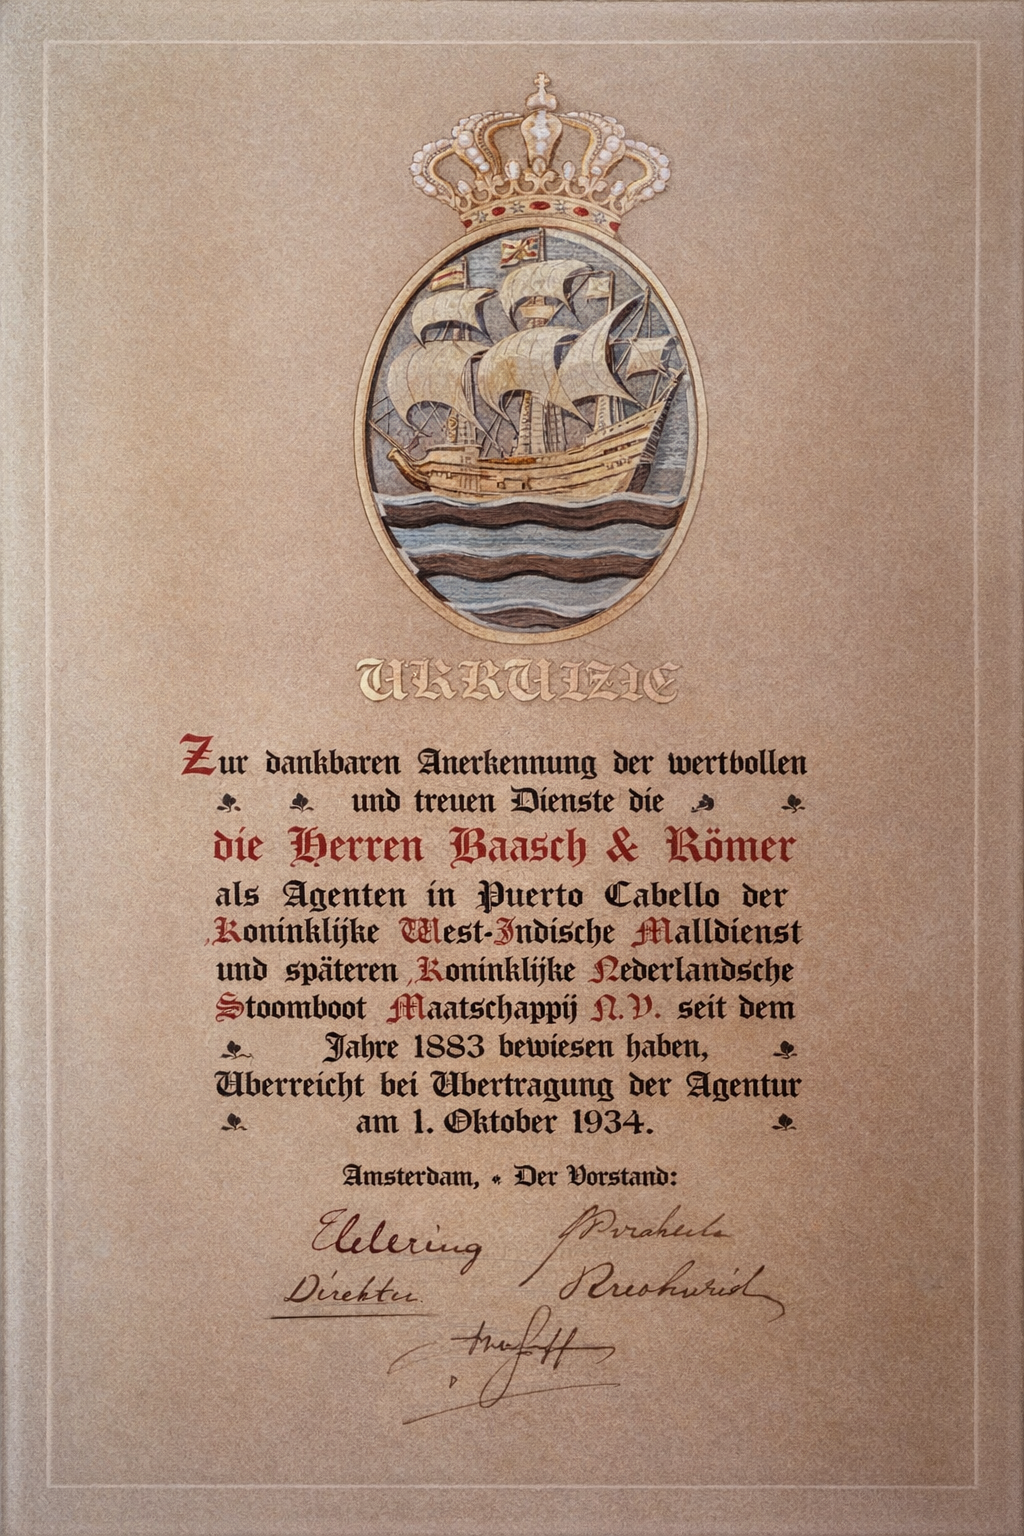 URRUIZIE
Zur dankbaren Anerkennung der wertvollen
und treuen Dienste die
die Herren Baasch & Römer
als Agenten in Puerto Cabello der
Koninklijke West-Indische Malldienst
und späteren Koninklijke Nederlandsche
Stoomboot Maatschappij N.V. seit dem
Jahre 1883 bewiesen haben,
Uberreicht bei Ubertragung der Agentur
am 1. Oktober 1934.
Amsterdam, Der Vorstand: